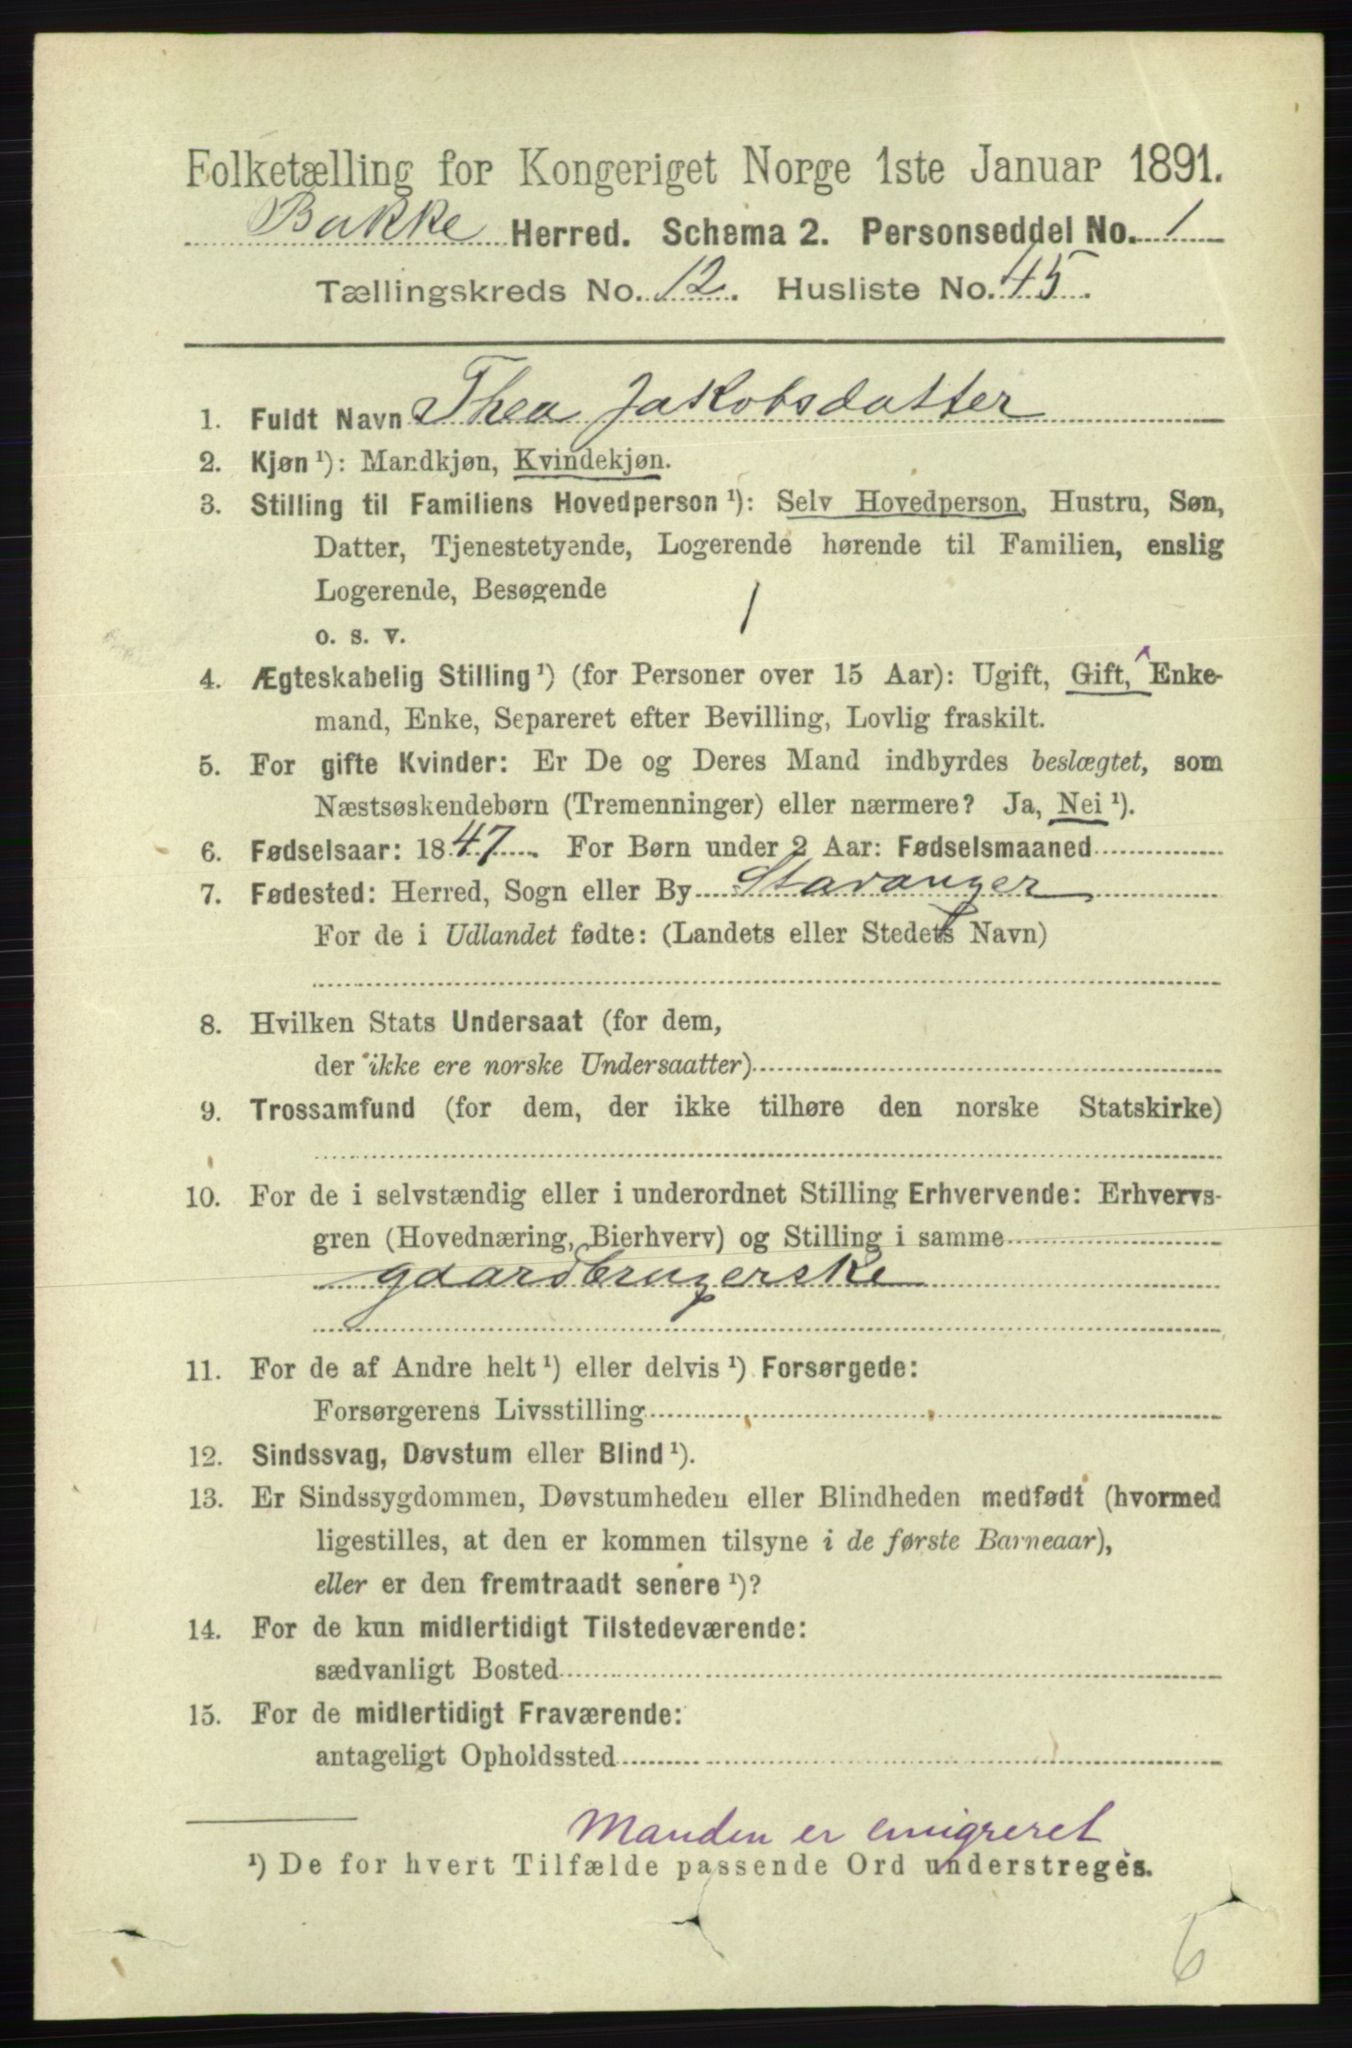 Folketælling for Kongeriget Norge 1ste Januar 1891.
Bakke Herred. Schema 2. Personseddel No. 1
Tællingskreds No. 12. Husliste No. 45.
1. Fuldt Navn Thea Jakobsdatter
2. Kjøn ¹): Mandkjøn, Kvindekjøn.
3. Stilling til Familiens Hovedperson ¹): Selv Hovedperson, Hustru, Søn,
Datter, Tjenestetyende, Logerende hørende til Familien, enslig
Logerende, Besøgende
o. s. v. 1
4. Ægteskabelig Stilling ¹) (for Personer over 15 Aar): Ugift, Gift, Enke-
mand, Enke, Separeret efter Bevilling, Lovlig fraskilt.
5. For gifte Kvinder: Er De og Deres Mand indbyrdes beslægtet, som
Næstsøskendebørn (Tremenninger) eller nærmere? Ja, Nei ¹).
6. Fødselsaar: 1847. For Børn under 2 Aar: Fødselsmaaned
7. Fødested: Herred, Sogn eller By Stavanger
For de i Udlandet fødte: (Landets eller Stedets Navn)
8. Hvilken Stats Undersaat (for dem,
der ikke ere norske Undersaatter)
9. Trossamfund (for dem, der ikke tilhøre den norske Statskirke)
10. For de i selvstændig eller i underordnet Stilling Erhvervende: Erhvervs-
gren (Hovednæring, Bierhverv) og Stilling i samme
gaardbrugerske
11. For de af Andre helt ¹) eller delvis ¹) Forsørgede:
Forsørgerens Livsstilling
12. Sindssvag, Døvstum eller Blind ¹).
13. Er Sindssygdommen, Døvstumheden eller Blindheden medfødt (hvormed
ligestilles, at den er kommen tilsyne i de første Barneaar),
eller er den fremtraadt senere ¹)?
14. For de kun midlertidigt Tilstedeværende:
sædvanligt Bosted
15. For de midlertidigt Fraværende:
antageligt Opholdssted
Manden er emigreret
¹) De for hvert Tilfælde passende Ord understreges.
6